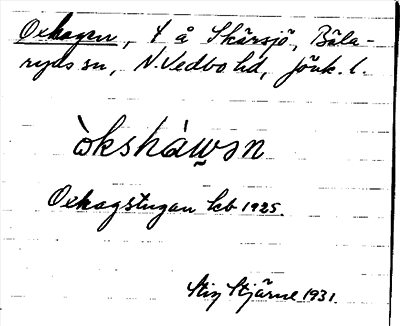 Oxhagen, t å Skärsjö, Bäla-
ryds sn, N. Vedbo hd, Jönk. l.
òkshàwən
Oxhagstugan kb 1925.
Stig Stjärne 1931.